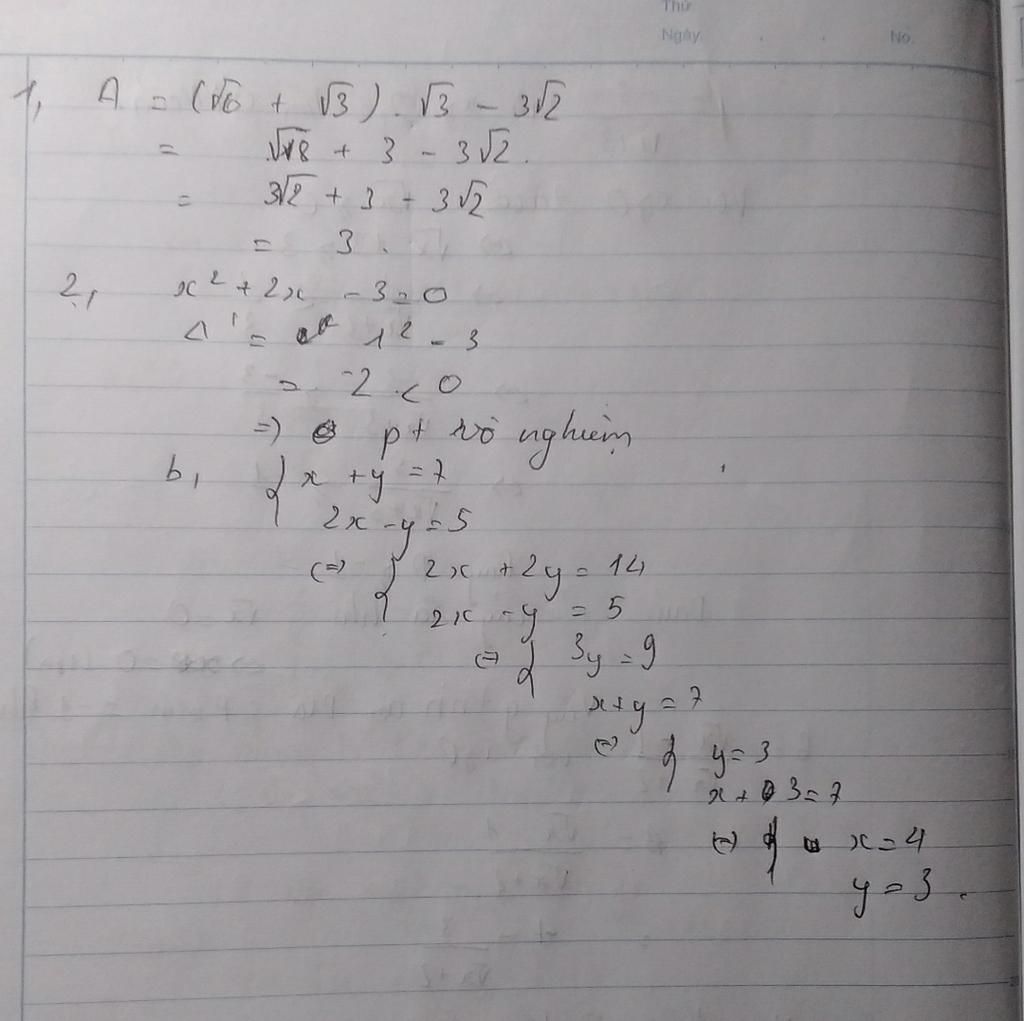 Thứ
Ngày . . No.
1, A = (√6 + √3) . √3 - 3√2
= √18 + 3 - 3√2.
= 3√2 + 3 + 3√2
= 3.
2, x² + 2x - 3 = 0
Δ' = 1² - 3
= -2 < 0
=) pt vô nghiệm
b, { x + y = 7
2x - y = 5
(=) { 2x + 2y = 14
2x - y = 5
(=) { 3y = 9
x + y = 7
(=) { y = 3
x + 3 = 7
(=) { x = 4
y = 3.